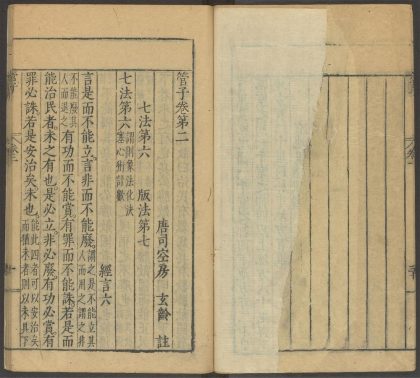 管子卷第二
唐司空房 玄齡 註
七法第六 版法第七
七法第六 謂則象法化決塞心術計數 經言六
言是而不能立言非而不能廢謂之是不能立其人而用之謂之非不能廢其人而退之有功而不能賞有罪而不能誅若是而
能治民者未之有也是必立非必廢有功必賞有
罪必誅若是安治矣未也能此四者可以安治矣而猶未者則以未具下